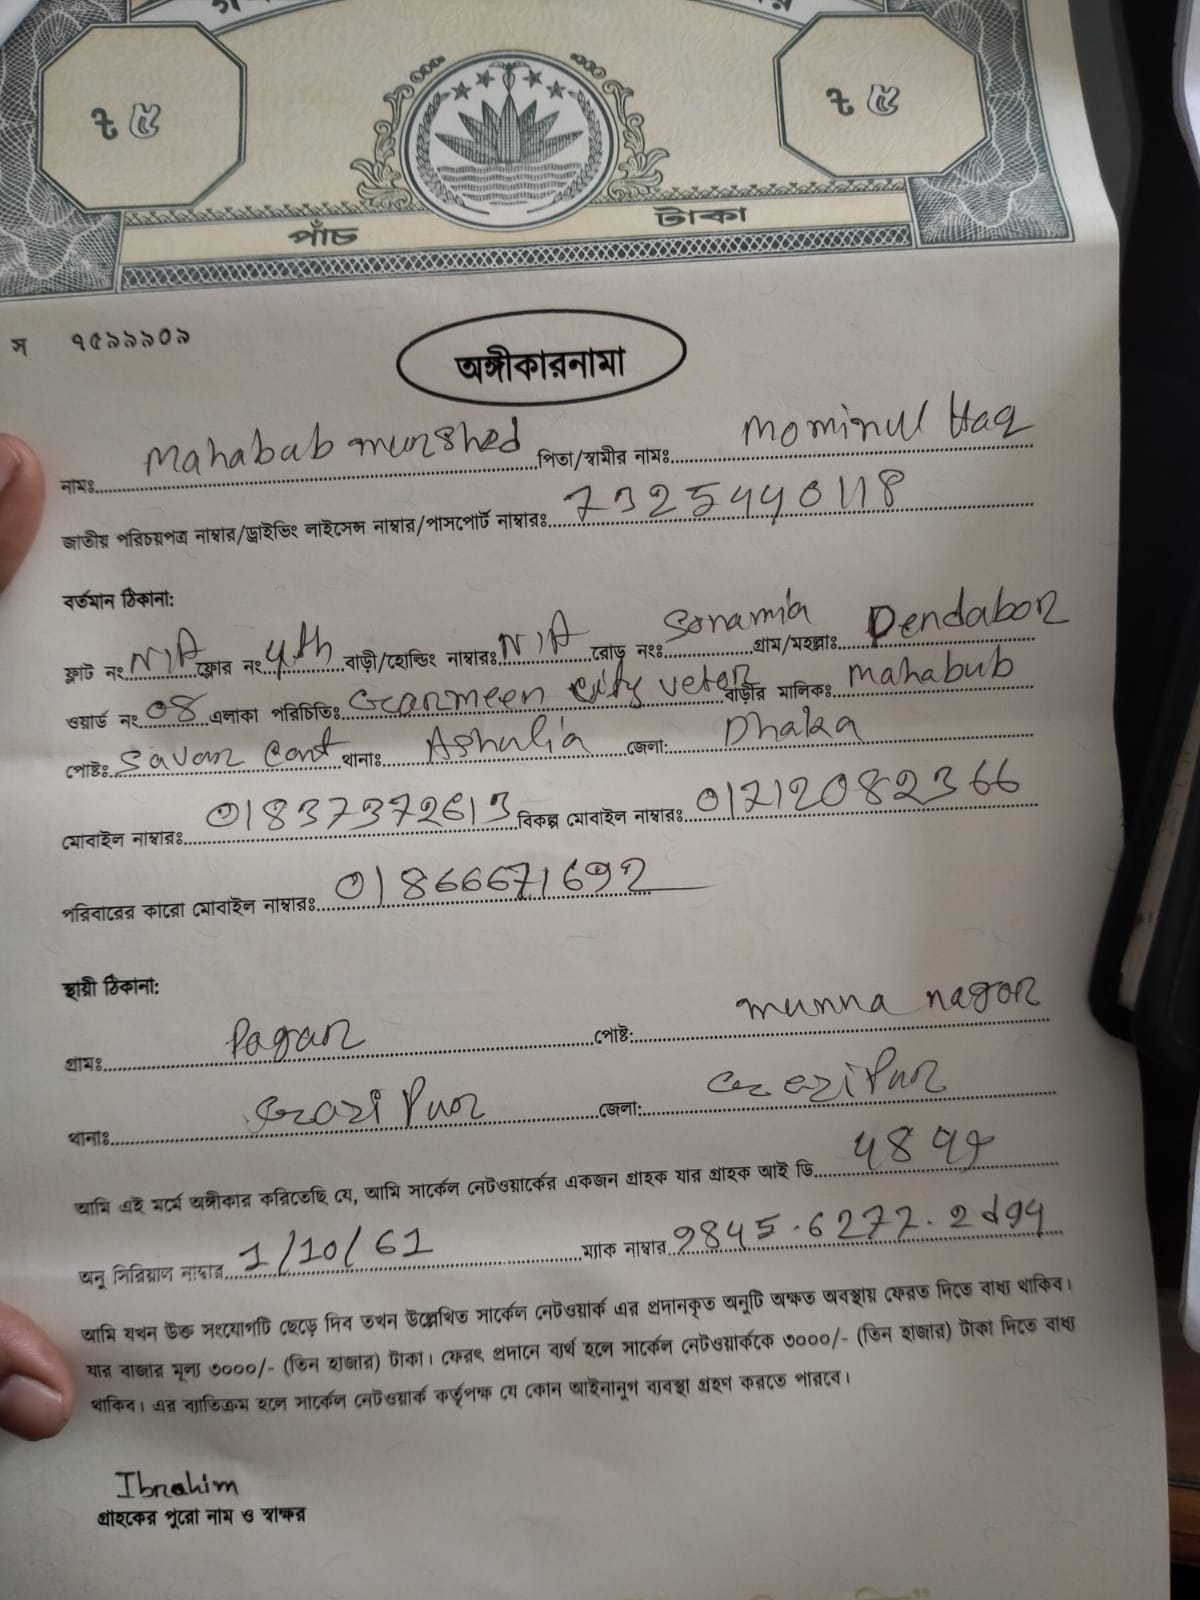 ৳ ৫
৳ ৫
পাঁচ টাকা
স ৭৫৯৯৯০৯
অঙ্গীকারনামা
নামঃ Mahabab murshed পিতা/স্বামীর নামঃ Mominul Haq
জাতীয় পরিচয়পত্র নাম্বার/ড্রাইভিং লাইসেন্স নাম্বার/পাসপোর্ট নাম্বারঃ 7325440118
বর্তমান ঠিকানা:
ফ্লাট নং N/A ফ্লোর নং 4th বাড়ী/হোল্ডিং নাম্বারঃ N/A রোড নংঃ Sonamia গ্রাম/মহল্লাঃ Dendabor
ওয়ার্ড নং 08 এলাকা পরিচিতিঃ Grarmeen City বাড়ীর মালিকঃ Mahabub
পোষ্টঃ Savar Cant থানাঃ Ashulia জেলা: Dhaka
মোবাইল নাম্বারঃ 01837372613 বিকল্প মোবাইল নাম্বারঃ 01712082366
পরিবারের কারো মোবাইল নাম্বারঃ 01866671692
স্থায়ী ঠিকানা:
গ্রামঃ Pagar পোষ্ট: munna nagor
থানাঃ Gazi Pur জেলা: Gazi Pur
আমি এই মর্মে অঙ্গীকার করিতেছি যে, আমি সার্কেল নেটওয়ার্কের একজন গ্রাহক যার গ্রাহক আই ডি
অনু সিরিয়াল নাম্বার 1/10/61 ম্যাক নাম্বার 9845.6277.2d94
আমি যখন উক্ত সংযোগটি ছেড়ে দিব তখন উল্লেখিত সার্কেল নেটওয়ার্ক এর প্রদানকৃত অনুটি অক্ষত অবস্থায় ফেরত দিতে বাধ্য থাকিব।
যার বাজার মূল্য ৩০০০/- (তিন হাজার) টাকা। ফেরৎ প্রদানে ব্যর্থ হলে সার্কেল নেটওয়ার্ককে ৩০০০/- (তিন হাজার) টাকা দিতে বাধ্য
থাকিব। এর ব্যাতিক্রম হলে সার্কেল নেটওয়ার্ক কর্তৃপক্ষ যে কোন আইনানুগ ব্যবস্থা গ্রহণ করতে পারবে।
Ibrahim
গ্রাহকের পুরো নাম ও স্বাক্ষর